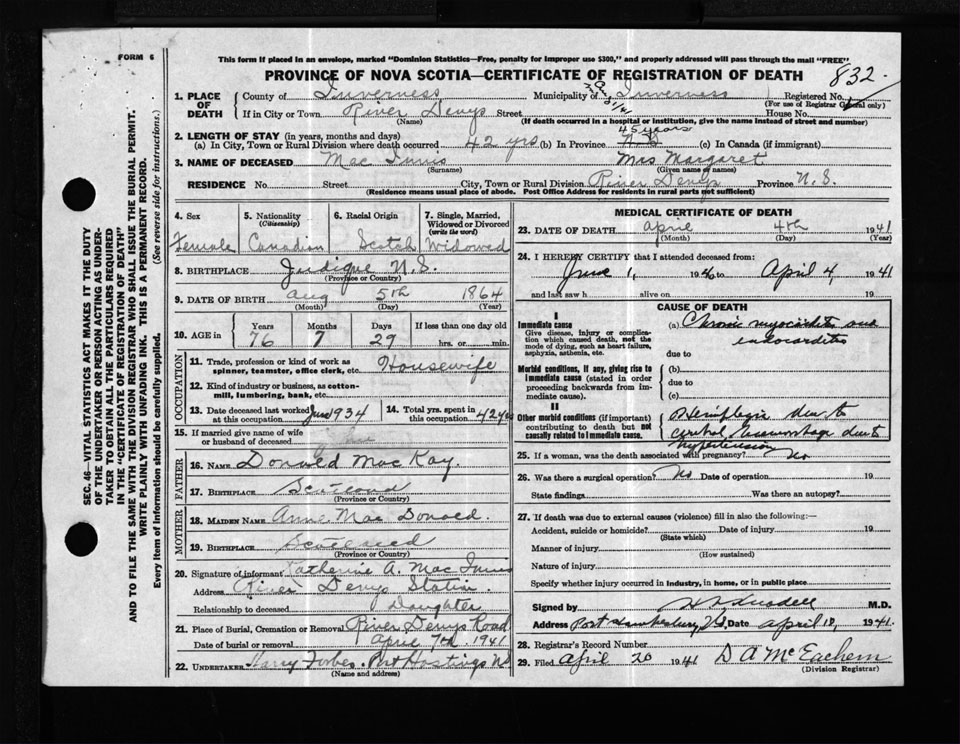 FORM 6
This form if placed in an envelope, marked "Dominion Statistics—Free, penalty for improper use $300," and properly addressed will pass through the mail "FREE".
PROVINCE OF NOVA SCOTIA—CERTIFICATE OF REGISTRATION OF DEATH
832
1. PLACE OF DEATH County of Inverness Municipality of Inverness Registered No.
(For use of Registrar General only)
If in City or Town River Denys Street House No.
(Name) (If death occurred in a hospital or institution, give the name instead of street and number)
2. LENGTH OF STAY (in years, months and days)
45 years
(a) In City, Town or Rural Division where death occurred 42 yrs (b) In Province (c) In Canada (if immigrant)
3. NAME OF DECEASED Mac Innis Mrs Margaret
(Surname) (Given name or names)
RESIDENCE No. Street City, Town or Rural Division River Denys Province N. S.
(Residence means usual place of abode. Post Office Address for residents in rural parts not sufficient)
4. Sex 5. Nationality (Citizenship) 6. Racial Origin 7. Single, Married, Widowed or Divorced (write the word)
Female Canadian Scotch Widowed
8. BIRTHPLACE Judique N.S.
(Province or Country)
9. DATE OF BIRTH Aug 5th 1864
(Month) (Day) (Year)
10. AGE in Years Months Days If less than one day old
76 7 29 hrs. or min.
OCCUPATION
11. Trade, profession or kind of work as spinner, teamster, office clerk, etc. Housewife
12. Kind of industry or business, as cotton-mill, lumbering, bank, etc.
13. Date deceased last worked at this occupation 1934 14. Total yrs. spent in this occupation 42 yrs
15. If married give name of wife or husband of deceased
FATHER
16. NAME Donald Mac Kay.
17. BIRTHPLACE Scotland
(Province or Country)
MOTHER
18. MAIDEN NAME Anne Mac Donald.
19. BIRTHPLACE Scotland
(Province or Country)
20. Signature of informant Katherine A. Mac Innis
Address River Denys Station
Relationship to deceased Daughter
21. Place of Burial, Cremation or Removal River Denys Road
Date of burial or removal April 7th 1941
22. UNDERTAKER Harry Forbes Port Hastings NS
(Name and address)
MEDICAL CERTIFICATE OF DEATH
23. DATE OF DEATH April 4th 1941
(Month) (Day) (Year)
24. I HEREBY CERTIFY that I attended deceased from:
June 1, 19 to April 4, 1941
and last saw h alive on 19
CAUSE OF DEATH
I
Immediate cause
Give disease, injury or complication which caused death, not the mode of dying, such as heart failure, asphyxia, asthenia, etc.
(a) Chronic myocarditis and endocarditis
due to
Morbid conditions, if any, giving rise to immediate cause (stated in order proceeding backwards from immediate cause).
(b)
due to
(c)
II
Other morbid conditions (if important) contributing to death but not causally related to immediate cause.
Hemiplegia due to
cerebral haemorrhage due to
hypertension
25. If a woman, was the death associated with pregnancy? No
26. Was there a surgical operation? No Date of operation 19
State findings Was there an autopsy?
27. If death was due to external causes (violence) fill in also the following:—
Accident, suicide or homicide? Date of injury 19
(State which)
Manner of injury
(How sustained)
Nature of injury
Specify whether injury occurred in industry, in home, or in public place
Signed by M.D.
Address Port Hawkesbury, N.S. Date April 18, 1941.
28. Registrar's Record Number
29. Filed April 20 1941 D A McEachern
(Division Registrar)
SEC. 46—VITAL STATISTICS ACT MAKES IT THE DUTY
OF THE UNDERTAKER OR PERSON ACTING AS UNDER-
TAKER TO OBTAIN ALL THE PARTICULARS REQUIRED
IN THE "CERTIFICATE OF REGISTRATION OF DEATH"
AND TO FILE THE SAME WITH THE DIVISION REGISTRAR WHO SHALL ISSUE THE BURIAL PERMIT.
WRITE PLAINLY WITH UNFADING INK. THIS IS A PERMANENT RECORD.
Every item of information should be carefully supplied. (See reverse side for instructions.)